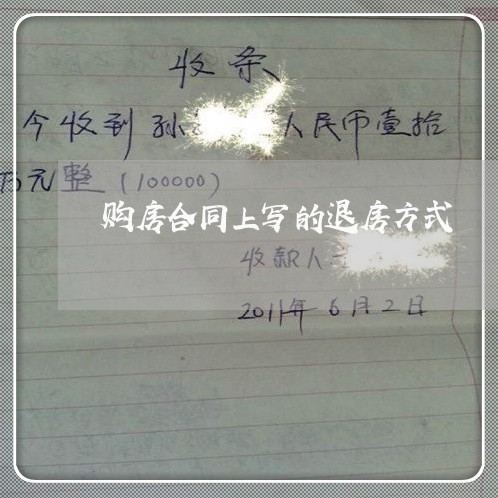 收条
今收到孙 人民币壹拾
万元整(100000)
购房合同上写的退房方式
收款人
2011年6月2日